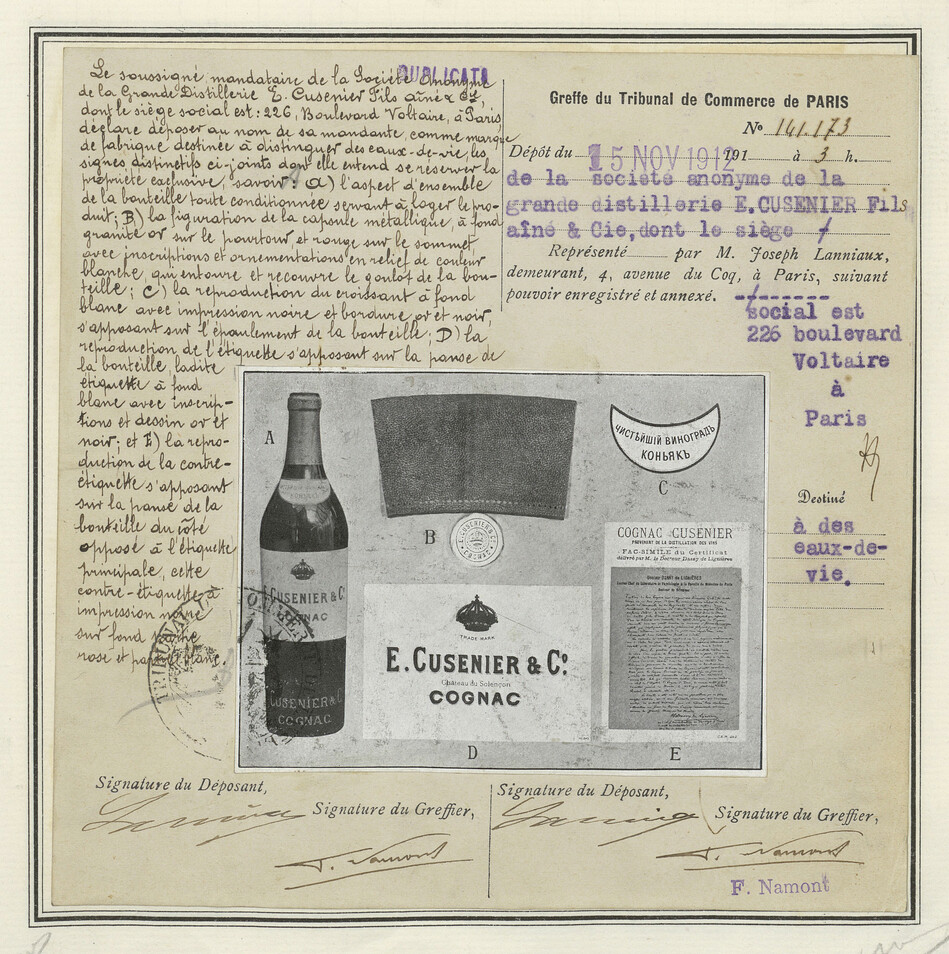 DUPLICATA
Le soussigné mandataire de la Société Anonyme
de la Grande Distillerie E. Cusenier Fils aîné & Cie,
dont le siège social est : 226, Boulevard Voltaire, à Paris,
déclare déposer au nom de sa mandante, comme marque
de fabrique destinée à distinguer des eaux-de-vie, les
signes distinctifs ci-joints dont elle entend se réserver la
propriété exclusive, savoir : A) l'aspect d'ensemble
de la bouteille toute conditionnée servant à loger le pro-
duit; B) la figuration de la capsule métallique, à fond
granité or sur le pourtour et rouge sur le sommet
avec inscriptions et ornementations en relief de couleur
blanche, qui entoure et recouvre le goulot de la bou-
teille; C) la reproduction du croissant à fond
blanc avec impression noire et bordure or et noir,
s'apposant sur l'épaulement de la bouteille; D) la
reproduction de l'étiquette s'apposant sur la panse de
la bouteille, ladite
étiquette à fond
blanc avec inscrip-
tions et dessin or et
noir; et E) la repro-
duction de la contre-
étiquette s'apposant
sur la panse de la
bouteille du côté
opposé à l'étiquette
principale, cette
contre-étiquette à
impression noire
sur fond
rose et blanc.
Greffe du Tribunal de Commerce de PARIS
No 141.173
Dépôt du 15 NOV 1912 191 à 3 h.
de la société anonyme de la
grande distillerie E.CUSENIER Fils
aîné & Cie,dont le siège /
Représenté par M. Joseph Lanniaux,
demeurant, 4, avenue du Coq, à Paris, suivant
pouvoir enregistré et annexé.
/social est
226 boulevard
Voltaire
à
Paris
Destiné
à des
eaux-de-
vie.
A
CUSENIER & Co
COGNAC
CUSENIER & Co
COGNAC
B
E. CUSENIER & Co
ЧИСТѢЙШІЙ ВИНОГРАДЪ
КОНЬЯКЪ
C
TRADE MARK
E. CUSENIER & Co.
Château du Solençon
COGNAC
D
COGNAC CUSENIER
PROVENANT DE LA DISTILLATION DES VINS
FAC-SIMILE du Certificat
E
TRIBUNAL
Signature du Déposant,
Signature du Greffier,
F. Namont
Signature du Déposant,
Signature du Greffier,
F. Namont
F. Namont